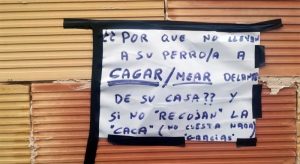 ¿¿POR QUE NO LLEVAN
A SU PERRO/A A
CAGAR/MEAR DELANTE
DE SU CASA?? Y
SI NO "RECOJAN" LA
"CACA" (NO CUESTA NADA)
"GRACIAS"